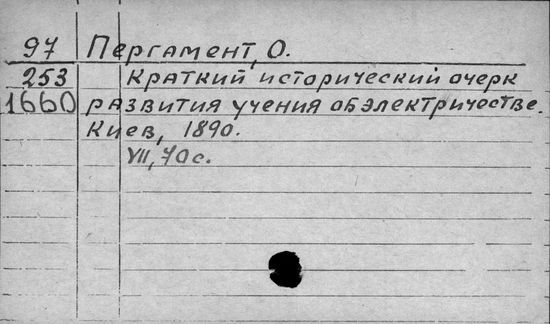 97 Пергамент, О.
253 Краткий исторический очерк
1660 развития учения об электричестве.
Киев, 1890.
VII, 70 с.